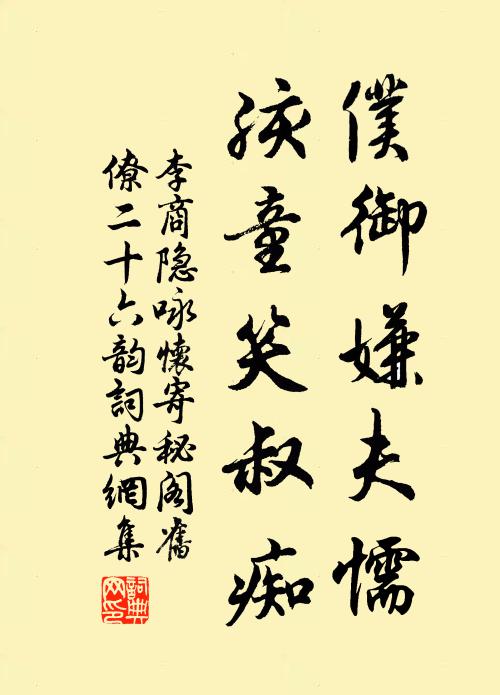 僕御嫌夫懦
孩童笑叔痴
李商隐咏懷寄秘阁舊
僚二十六韵詞典網集
詞典
网印